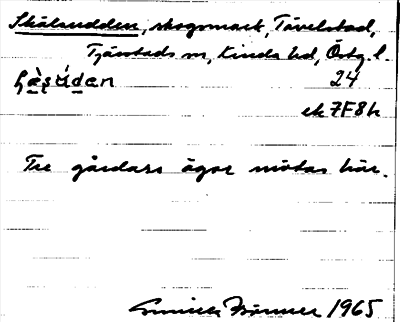 Skälsudden, skogsmark, Tävelstad,
Tjärstads sn, Kinda hd, Östg. l.
24
ek 7F8h
Tre gårdars ägor mötas här.
1965